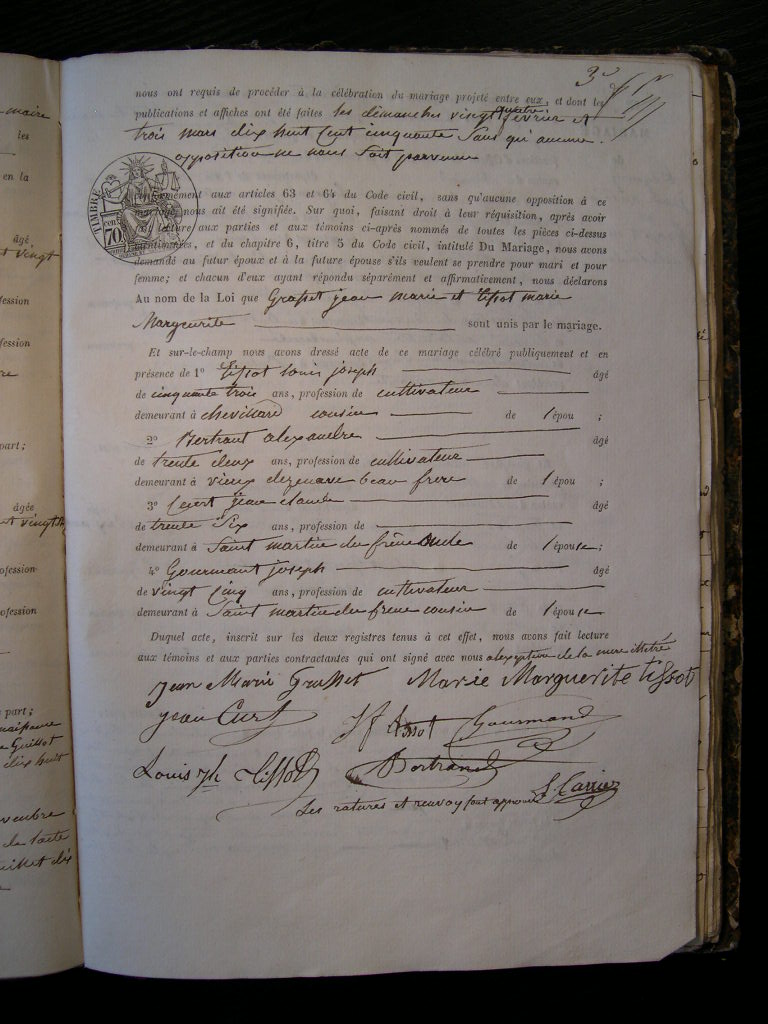 3e
nous ont requis de procéder à la célébration du mariage projeté entre eux, et dont les
quatre
publications et affiches ont été faites les dimanches vingt février et
trois mars dix huit cent cinquante sans qu'aucune
opposition ne nous soit parvenue
TIMBRE
70
conformément aux articles 63 et 64 du Code civil, sans qu'aucune opposition à ce
mariage nous ait été signifiée. Sur quoi, faisant droit à leur réquisition, après avoir
fait lecture aux parties et aux témoins ci-après nommés de toutes les pièces ci-dessus
mentionnées, et du chapitre 6, titre 5 du Code civil, intitulé Du Mariage, nous avons
demandé au futur époux et à la future épouse s'ils veulent se prendre pour mari et pour
femme; et chacun d'eux ayant répondu séparément et affirmativement, nous déclarons
Au nom de la Loi que Grasset jean marie et tissot marie
Marguerite sont unis par le mariage.
Et sur-le-champ nous avons dressé acte de ce mariage célébré publiquement et en
présence de 1° tissot louis joseph âgé
de cinquante trois ans, profession de cultivateur
demeurant à chevillard cousin de l'épou ;
2° Bertrant alexandre âgé
de trente deux ans, profession de cultivateur
demeurant à vieux beau frere de l'épou ;
3° jean claude âgé
de trente six ans, profession de
demeurant à Saint martin du frêne oncle de l'épouse ;
4° Gourmant joseph âgé
de vingt cinq ans, profession de cultivateur
demeurant à Saint martin du frene cousin de l'épouse
Duquel acte, inscrit sur les deux registres tenus à cet effet, nous avons fait lecture
aux témoins et aux parties contractantes qui ont signé avec nous a lexception de la mere illitré
Jean Marie Grasset Marie Marguerite tissot
jean tissot Gourmand
Louis jh tissot Bertrand
Les ratures et renvoy sont approuvé Carrier